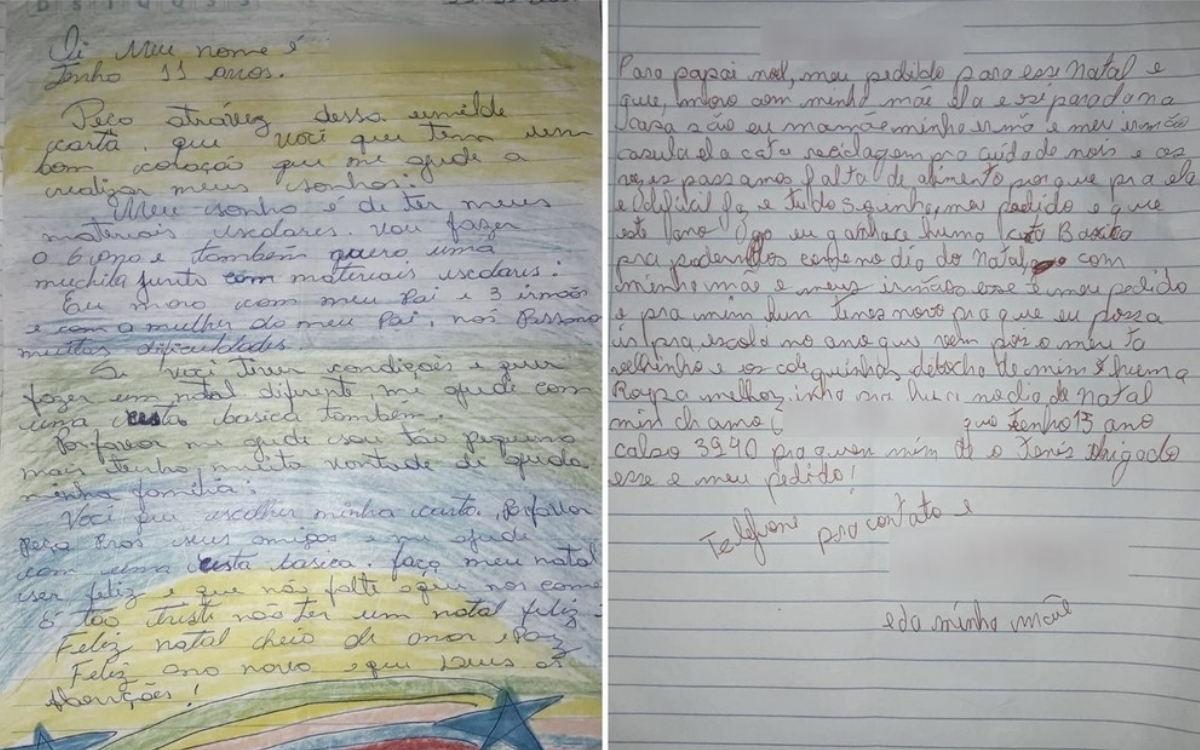 Oi Meu nome é
Tenho 11 anos.
Peço atrávez dessa umilde
carta, que você que tem um
bom coração que me ajude a
realizar meus sonhos:
Meu sonho é di ter meus
materiais escolares. vou fazer
o 6 ano e também quero uma
muchila junto com materiais escolares:
Eu moro com meu Pai e 3 irmãos
e com a mulher do meu Pai, nós Passamos
muitas dificuldades.
Si você tiver condições e quer
fazer um natal diferente, me ajude com
uma cesta basica também.
Porfavor me ajude sou tão pequeno
mais tenho muita vontade di ajuda
minha família:
Você que escolher minha carta, Porfavor
Peça Pros seus amigos e me ajude
com uma cesta basica. faça meu natal
ser feliz e que não falte aqui nos come
é tão triste não ter um natal feliz:
Feliz natal cheio di amor e Paz
Feliz ano novo e que Deus os
abençõis!
Para papai noel, meu pedido para esse Natal e
que, moro com minha mãe ela e separada na
casa são eu mamãe minha irmã e meu irmão
casula ela cata reciclagem pra cuida de nois e as
vezes passamos falta de alimento porque pra ela
e dificil faz e tudo sozinha, meu pedido e que
este ano eu ganhace huma Basica
pra podermos come no dia do natal, com
minha mãe e meus irmãos esse é meu pedido
e pra mim hum Tenes novo pra que eu possa
ir pra escola no ano que vem pois o meu ta
velhinho e os coleguinhas debocha de mim e huma
Roupa melhorzinha pra no dia de natal
min chamo que tenho 13 ano
calso 3940 pra quem mim de o Tenis obrigado
esse e meu pedido!
Telefone pra contato e
e da minha mãe